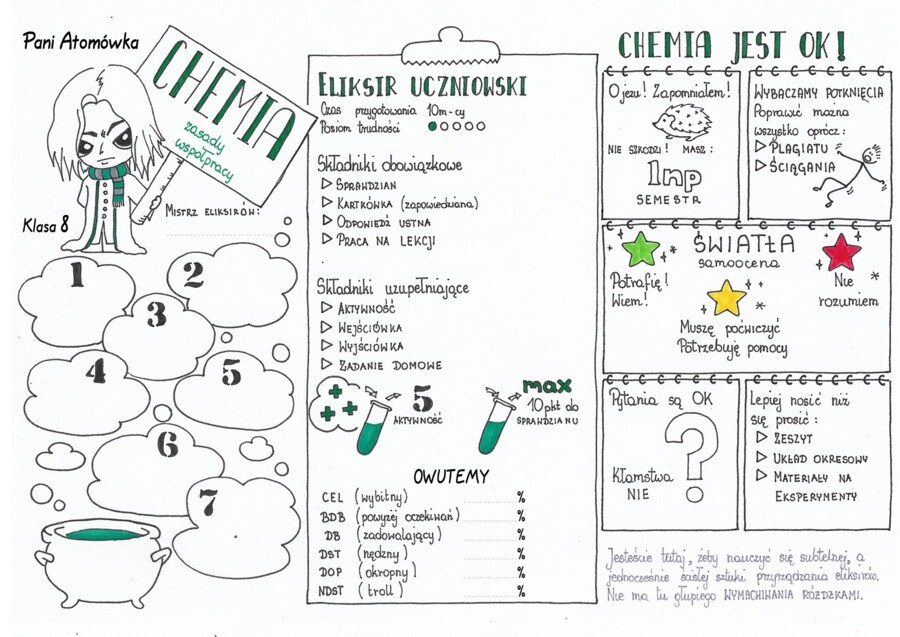 Pani Atomówka
CHEMIA
zasady
współpracy
Klasa 8
MISTRZ ELIKSIRÓW:
1
2
3
4
5
6
7
ELIKSIR UCZNIOWSKI
Czas przygotowania 10m-cy
Poziom trudności
Składniki obowiązkowe
SPRAWDZIAN
KARTKÓWKA (zapowiedziana)
ODPOWIEDŹ USTNA
PRACA NA LEKCJI
Składniki uzupełniające
AKTYWNOŚĆ
WEJŚCIÓWKA
WYJŚCIÓWKA
ZADANIE DOMOWE
5
AKTYWNOŚĆ
max
10 pkt do
SPRAWDZIANU
OWUTEMY
CEL (wybitny) %
BDB (powyżej oczekiwań) %
DB (zadowalający) %
DST (nędzny) %
DOP (okropny) %
NDST (troll) %
CHEMIA JEST OK!
O jezu! Zapomniałem!
NIE SZKODZI! MASZ:
1np
SEMESTR
WYBACZAMY POTKNIĘCIA
Poprawić można
wszystko oprócz:
PLAGIATU
ŚCIĄGANIA
ŚWIATŁA
samoocena
Potrafię!
Wiem!
Nie
rozumiem
Muszę poćwiczyć
Potrzebuję pomocy
Pytania są OK
?
Kłamstwa
NIE
Lepiej nosić niż
się prosić:
ZESZYT
UKŁAD OKRESOWY
MATERIAŁY NA
EKSPERYMENTY
Jesteście tutaj, żeby nauczyć się subtelnej, a
jednocześnie ścisłej sztuki przyrządzania eliksirów.
Nie ma tu głupiego WYMACHIWANIA RÓŻDŻKAMI.